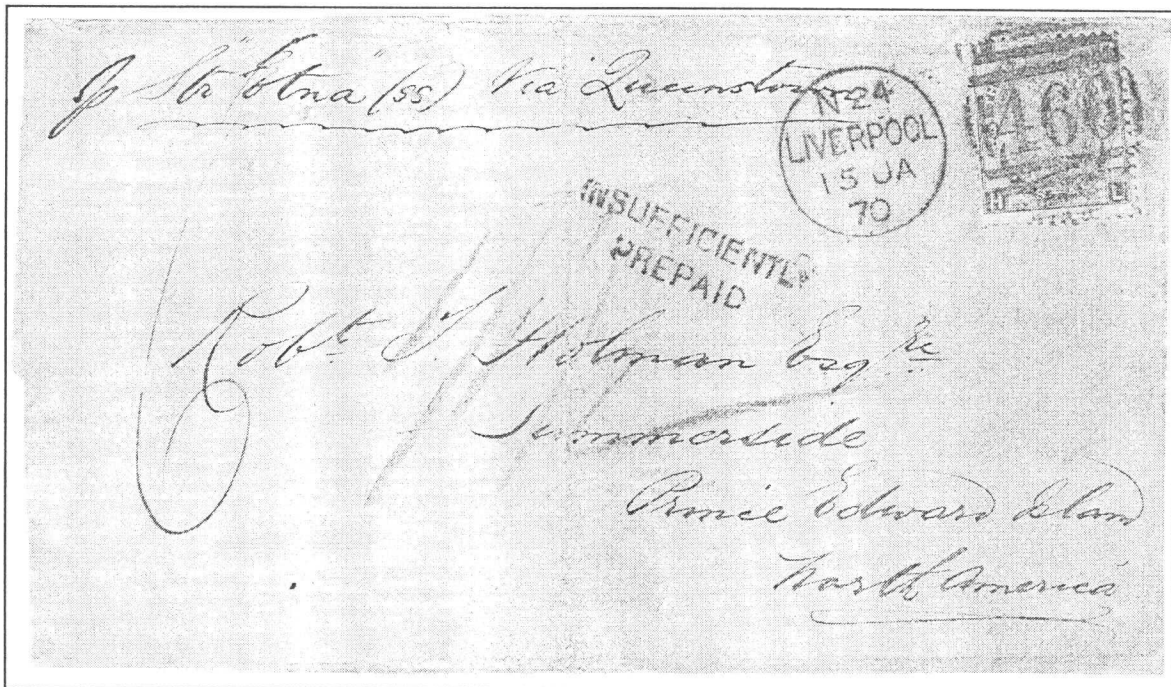 p Str "Etna" (ss) Via Queenstown
N 24
LIVERPOOL
15 JA
70
466
H L
INSUFFICIENTLY
PREPAID
6
Robt T. Holman Esqre
Summerside
Prince Edward Islan
North America